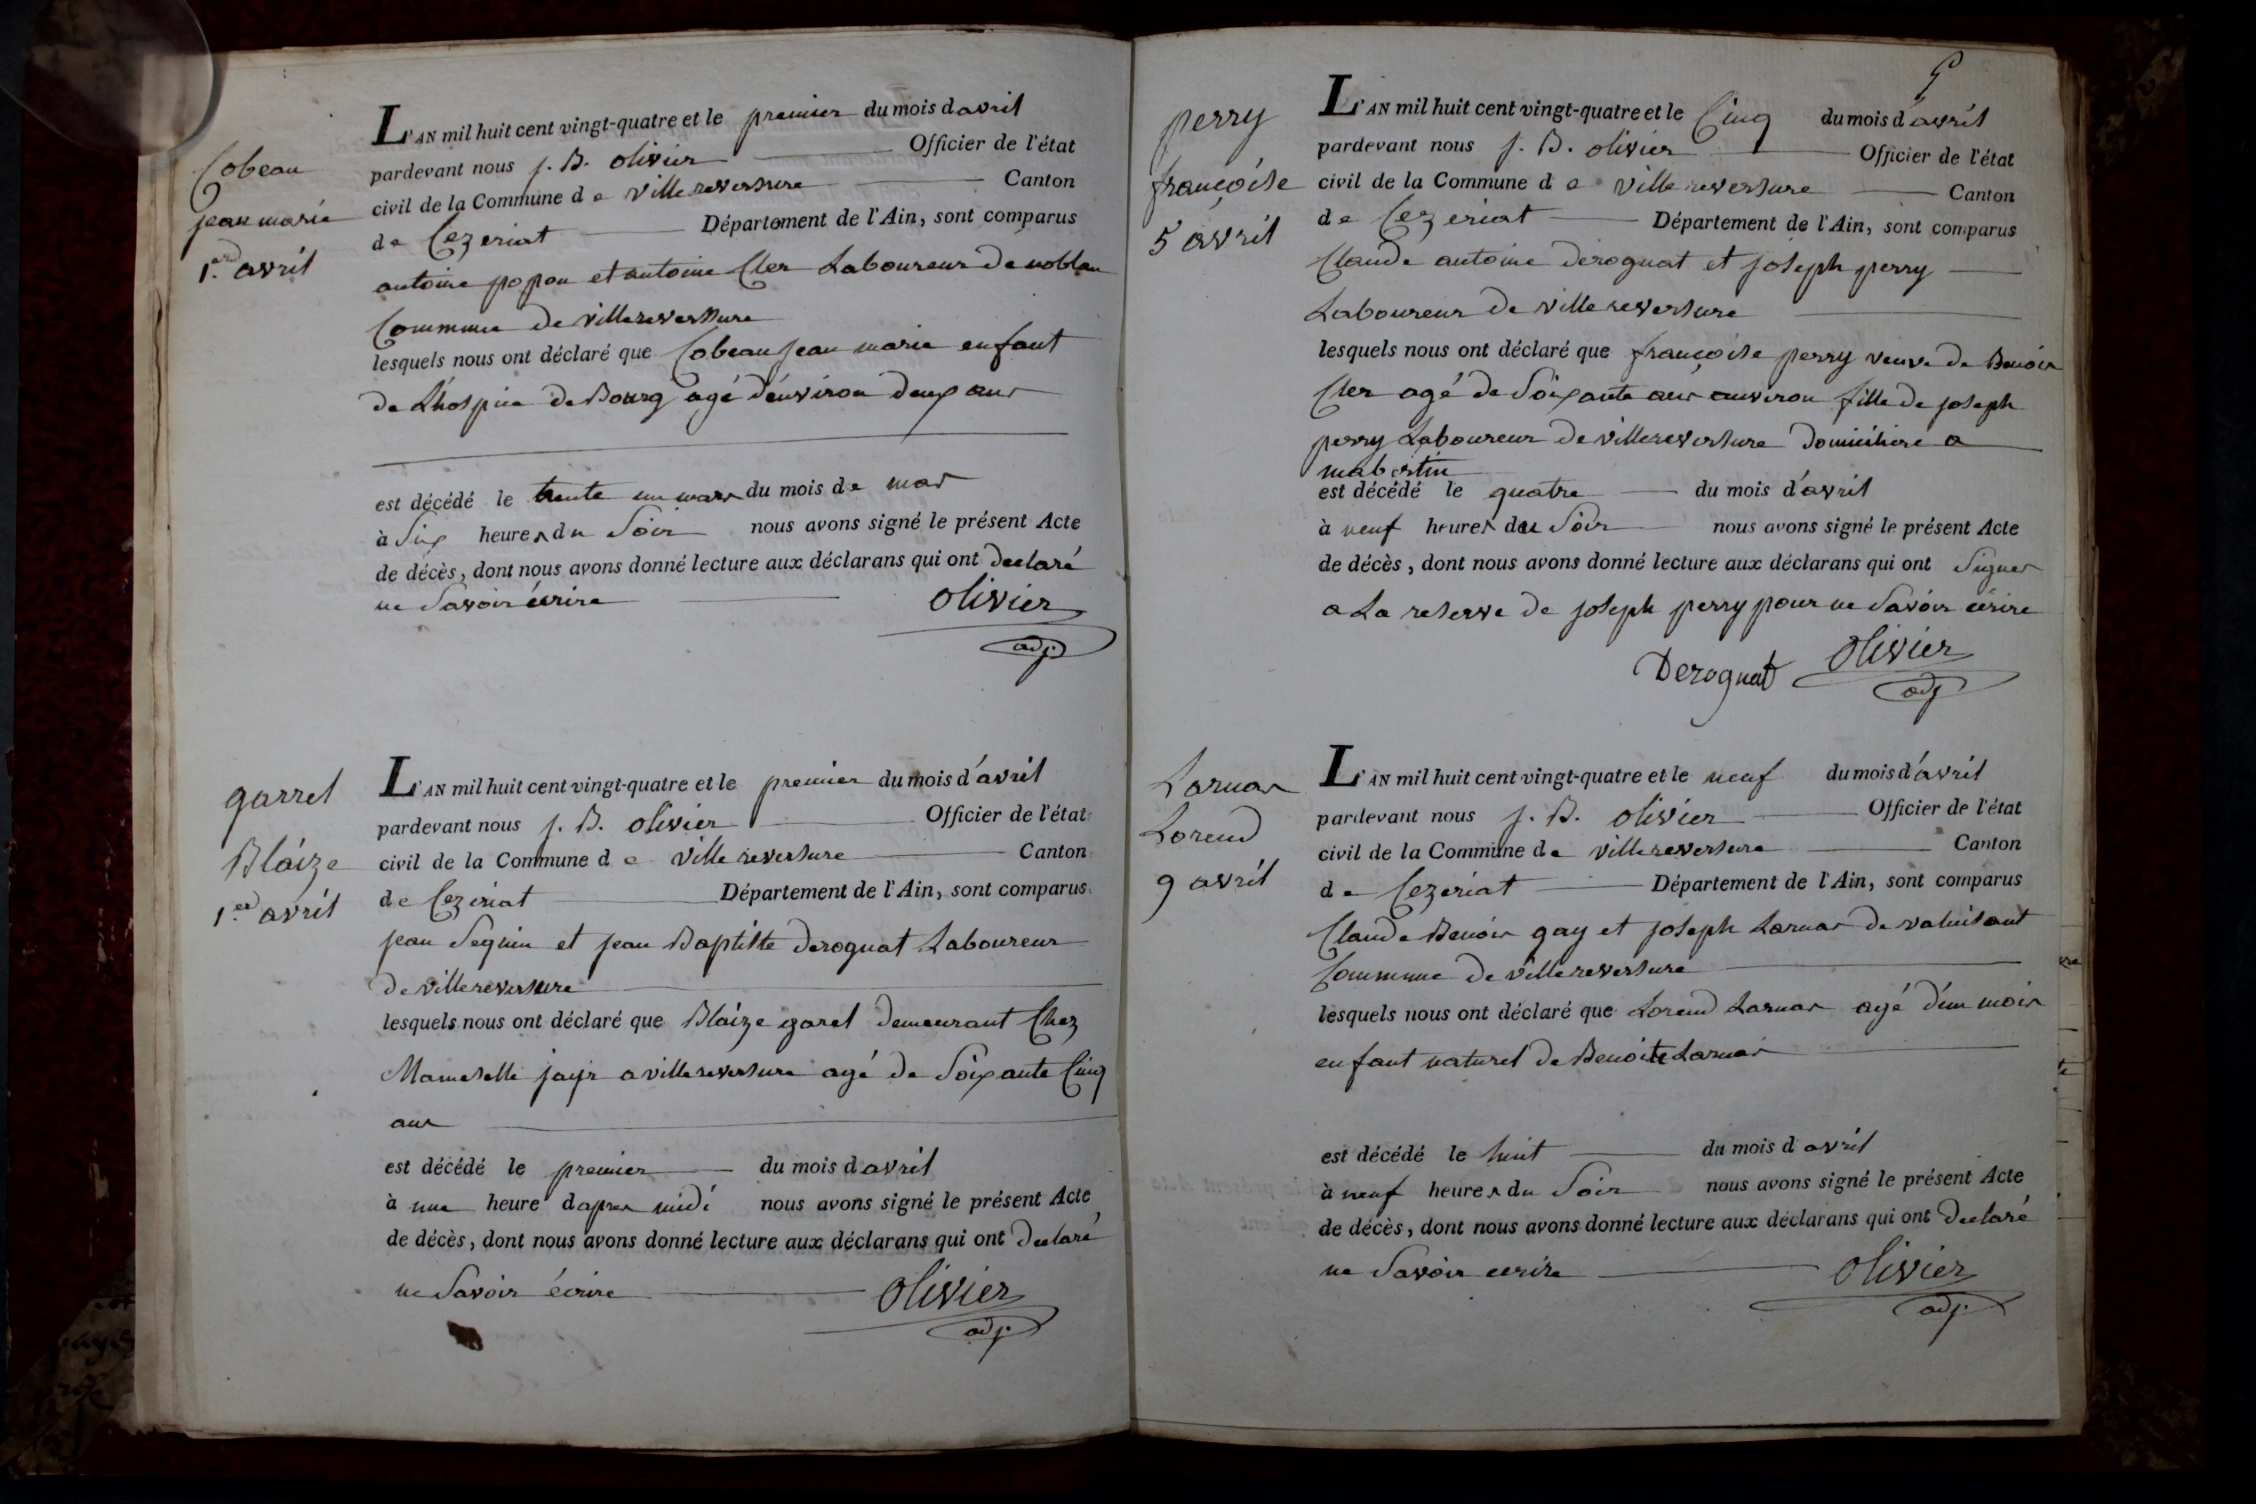 Cobeau
jean marie
1.er avril
L'AN mil huit cent vingt-quatre et le premier du mois d avril
pardevant nous j. B. olivier Officier de l'état
civil de la Commune d e villereversure Canton
de Cezeriat Département de l'Ain, sont comparus
antoine popon et antoine Cler Laboureur de noblan
Commune de villereversure
lesquels nous ont déclaré que Cobeau jean marie enfant
de L'hospice de Bourg agé d'environ deux ans
est décédé le trente un mars du mois de mars
à Six heures du Soir nous avons signé le présent Acte
de décès, dont nous avons donné lecture aux déclarans qui ont declaré
ne Savoir écrire olivier
adj.
garrel
Blaize
1.er avril
L'AN mil huit cent vingt-quatre et le premier du mois d'avril
pardevant nous j. B. olivier Officier de l'état
civil de la Commune d e villereversure Canton
de Ceziriat Département de l'Ain, sont comparus
jean Seguin et jean Baptiste derognat Laboureur
de villereversure
lesquels nous ont déclaré que Blaize garel demeurant Chez
Mameselle jayr a villereversure agé de Soixante Cinq
ans
est décédé le premier du mois d avril
à une heure d'apres midi nous avons signé le présent Acte
de décès, dont nous avons donné lecture aux déclarans qui ont declaré
ne Savoir écrire olivier
adj.
5
perry
françoise
5 avril
L'AN mil huit cent vingt-quatre et le Cinq du mois d'avril
pardevant nous j. B. olivier Officier de l'état
civil de la Commune d e villereversure Canton
de Cezeriat Département de l'Ain, sont comparus
Claude antoine derognat et joseph perry
Laboureur de villereversure
lesquels nous ont déclaré que françoise perry veuve de Benoir
Cler agé de Soixante ans anviron fille de joseph
perry Laboureur de villereversure domiciliere a
mabertin
est décédé le quatre du mois d'avril
à neuf heures du Soir nous avons signé le présent Acte
de décès, dont nous avons donné lecture aux déclarans qui ont Signer
a La reserve de joseph perry pour ne Savoir écrire
Derognat olivier
adj
Larnar
Lorend
9 avril
L'AN mil huit cent vingt-quatre et le neuf du mois d'avril
pardevant nous j. B. olivier Officier de l'état
civil de la Commune de villereversure Canton
de Cezeriat Département de l'Ain, sont comparus
Claude Benoir gay et joseph Larnar de valuisant
Commune de villereversure
lesquels nous ont déclaré que Lorend Larnar agé d'un mois
enfant naturel de Benoite Larnar
est décédé le huit du mois d avril
à neuf heures du Soir nous avons signé le présent Acte
de décès, dont nous avons donné lecture aux déclarans qui ont declaré
ne Savoir ecrire olivier
adj.